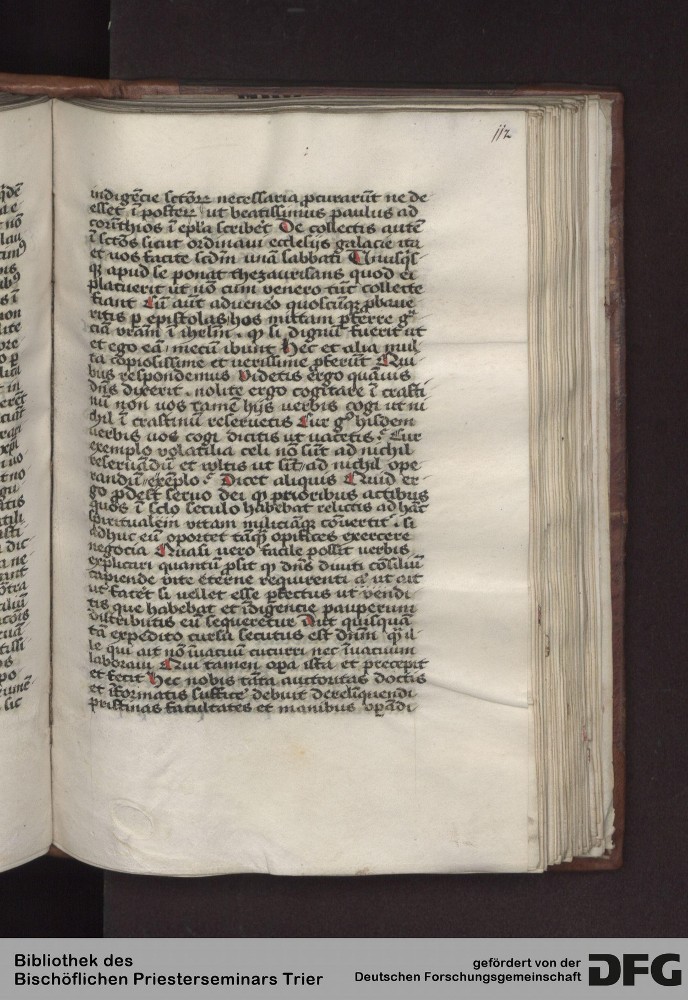 112
indigẽcie sctõꝝ necessaria ꝓcurarũt ne de
esset ĩ posteꝝ ut beatissimus paulus ad
corĩthios ĩ epl'a scribẽs De collectis autẽ
ĩ sctõs sicut ordinaui ecclesijs galacie ita
et uos facite scd̃m unã sabbati Unusqͥsqꝫ
apud se ponat thezaurisans quod ei
placuerit ut nõ cum venero tũc collecte
fiant Cũ aũt aduenero quoscũqꝫ ꝓbaue
ritis ꝑ epistolas hos mittam ꝑferre gͣ
ciã vr̃am ĩ ihrlm̃ . qͥ si dignũ fuerit ut
et ego eã mecũ ibunt Hec et alia mul
ta copiosissime et uerissime ꝓferũt Qui
bus respondemus Videtis ergo quãuis
dñs dixerit . nolite ergo cogitare ĩ crasti
nũ non uos tamẽ hijs verbis cogi ut ni
chil ĩ crastinũ reseruetis Cur gͦ hisdem
uerbis uos cogi dicitis ut vacetis Cur
exemplo volatilia celi nõ sũt ad nichil
reseruãdũ et vultis ut sĩt ad nichil ope
randũ exẽplo Dicet aliquis Quid er
go ꝓdest seruo dei qͥ prioribus actibus
quos ĩ sclo seculo habebat relictis ad hãc
spiritualem vitam miliciãqꝫ cõuertit si
adhuc eũ oportet tãqͣ opifices exercere
negocia Quasi uero facile possit uerbis
explicari quantũ ꝓsit qͥ dñs diuiti cõsiliũ
capiende vite eterne requirenti ut ait
ut facẽt si vellet esse ꝑfectus ut vendi
tis que habebat et ĩdigencie pauperum
distributis eũ sequeretur Aut quisquã
tã expedito cursu secutus est dñm qͣ il
le qui ait nõ ĩuacuũ cucurri nec ĩuacuum
laboraui Qui tamen oꝑa ista et precepit
et fecit Hec nobis tãta auctoritas doctis
et ĩformatis sufficẽ debuit derelĩquendi
pristinas facultates et manibus oꝑãdi
Bibliothek des
Bischöflichen Priesterseminars Trier
gefördert von der
Deutschen Forschungsgemeinschaft
DFG